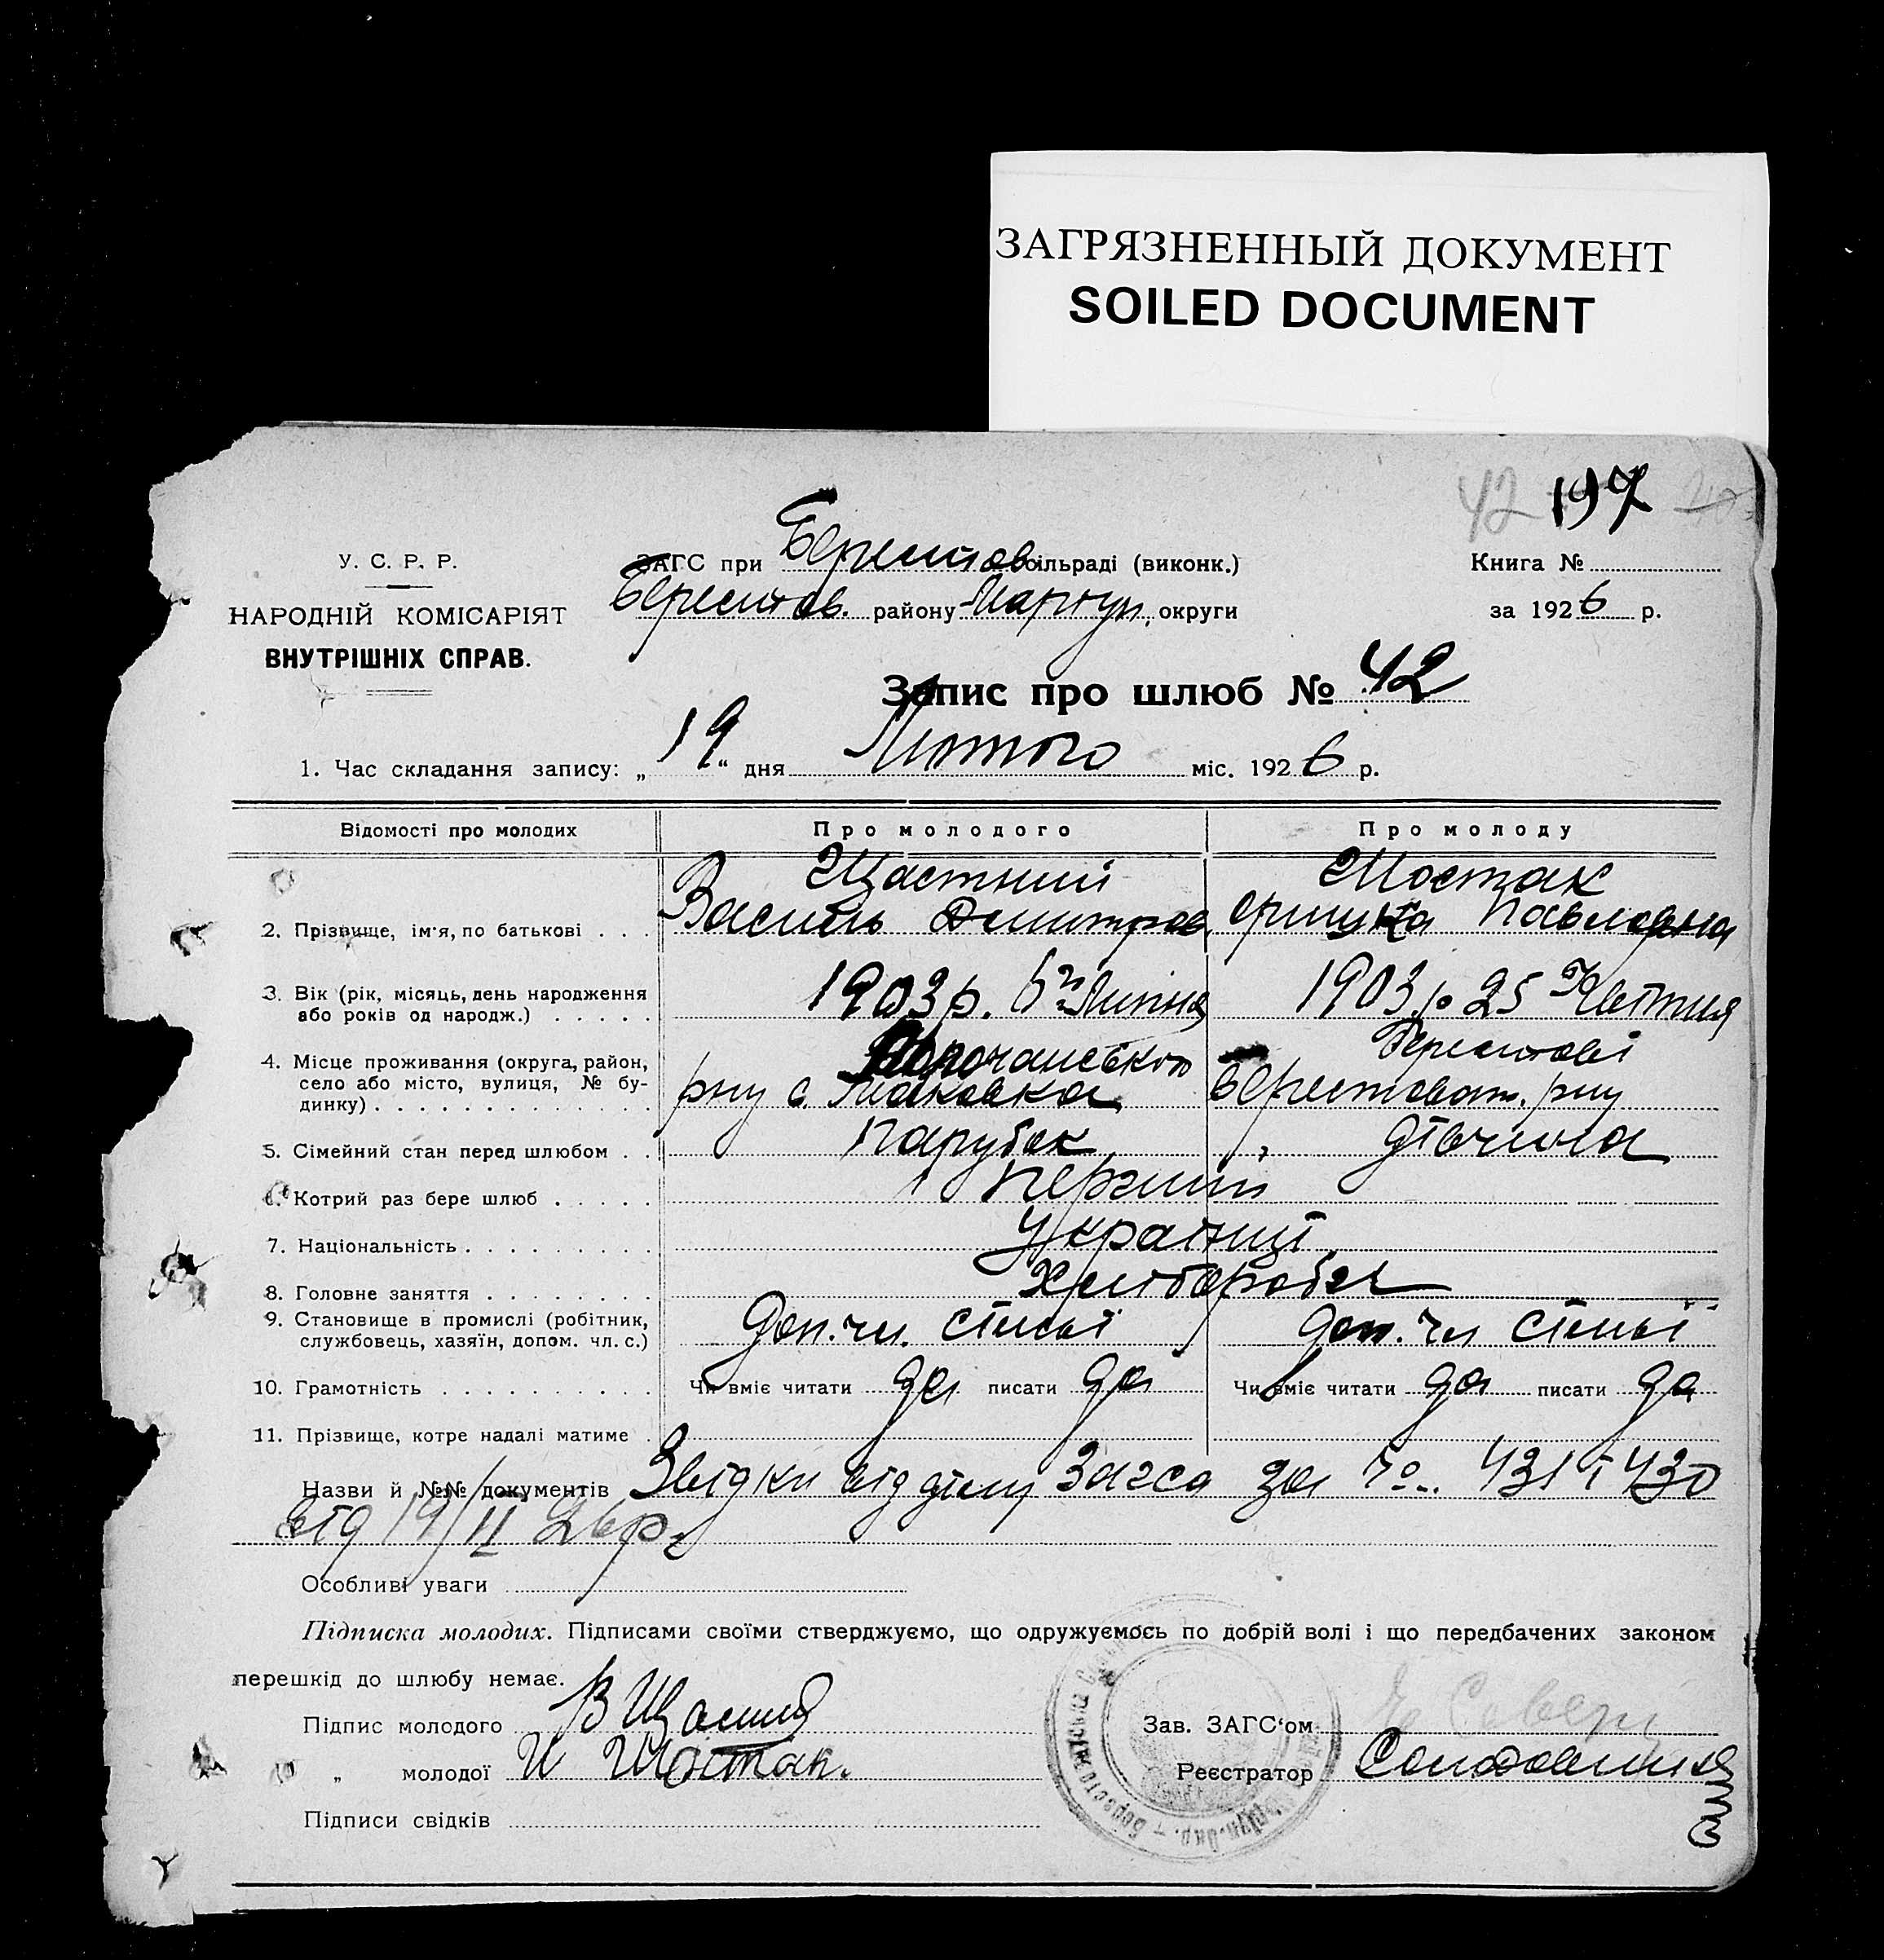 ЗАГРЯЗНЕННЫЙ ДОКУМЕНТ
SOILED DOCUMENT
42 197
У. С. Р. Р.
НАРОДНІЙ КОМІСАРІЯТ
ВНУТРІШНІХ СПРАВ.
ЗАГС при Берестов сільраді (виконк.)
Берестов. району Маріуп. округи
Книга №
за 1926 р.
Запис про шлюб № 42
1. Час складання запису: „19“ дня Лютого міс. 1926 р.
Відомості про молодих Про молодого Про молоду
Щастний Шостак
2. Прізвище, ім'я, по батькові . . . Василь Дмитров. Оришка Павловна
3. Вік (рік, місяць, день народження 1903 р. 6го Липня 1903 р 25 Квітня
або років од народж.) . . . . .
4. Місце проживання (округа, район, Берестові
село або місто, вулиця, № бу- рну с. Маковка Берестоват. рну
динку) . . . . . . . . . . . . .
5. Сімейний стан перед шлюбом . . Парубок дівчина
6. Котрий раз бере шлюб . . . . . Перший
7. Національність . . . . . . . . . Україн͏ці
8. Головне заняття . . . . . . . . Хлібороби
9. Становище в промислі (робітник, Доп. чл. сімьї доп. чл сімьї
службовець, хазяїн, допом. чл. с.)
10. Грамотність . . . . . . . . . . . Чи вміє читати да писати да Чи вміє читати да писати да
11. Прізвище, котре надалі матиме .
Назви й №№ документів Звідки від ділу Загса за №. 431 і 430
від 19/II 26 р.
Особливі уваги
Підписка молодих. Підписами своїми стверджуємо, що одружуємось по добрій волі і що передбачених законом
перешкід до шлюбу немає.
Підпис молодого В Щасний
Зав. ЗАГС'ом
„ молодої И Шостак.
Реєстратор
Підписи свідків